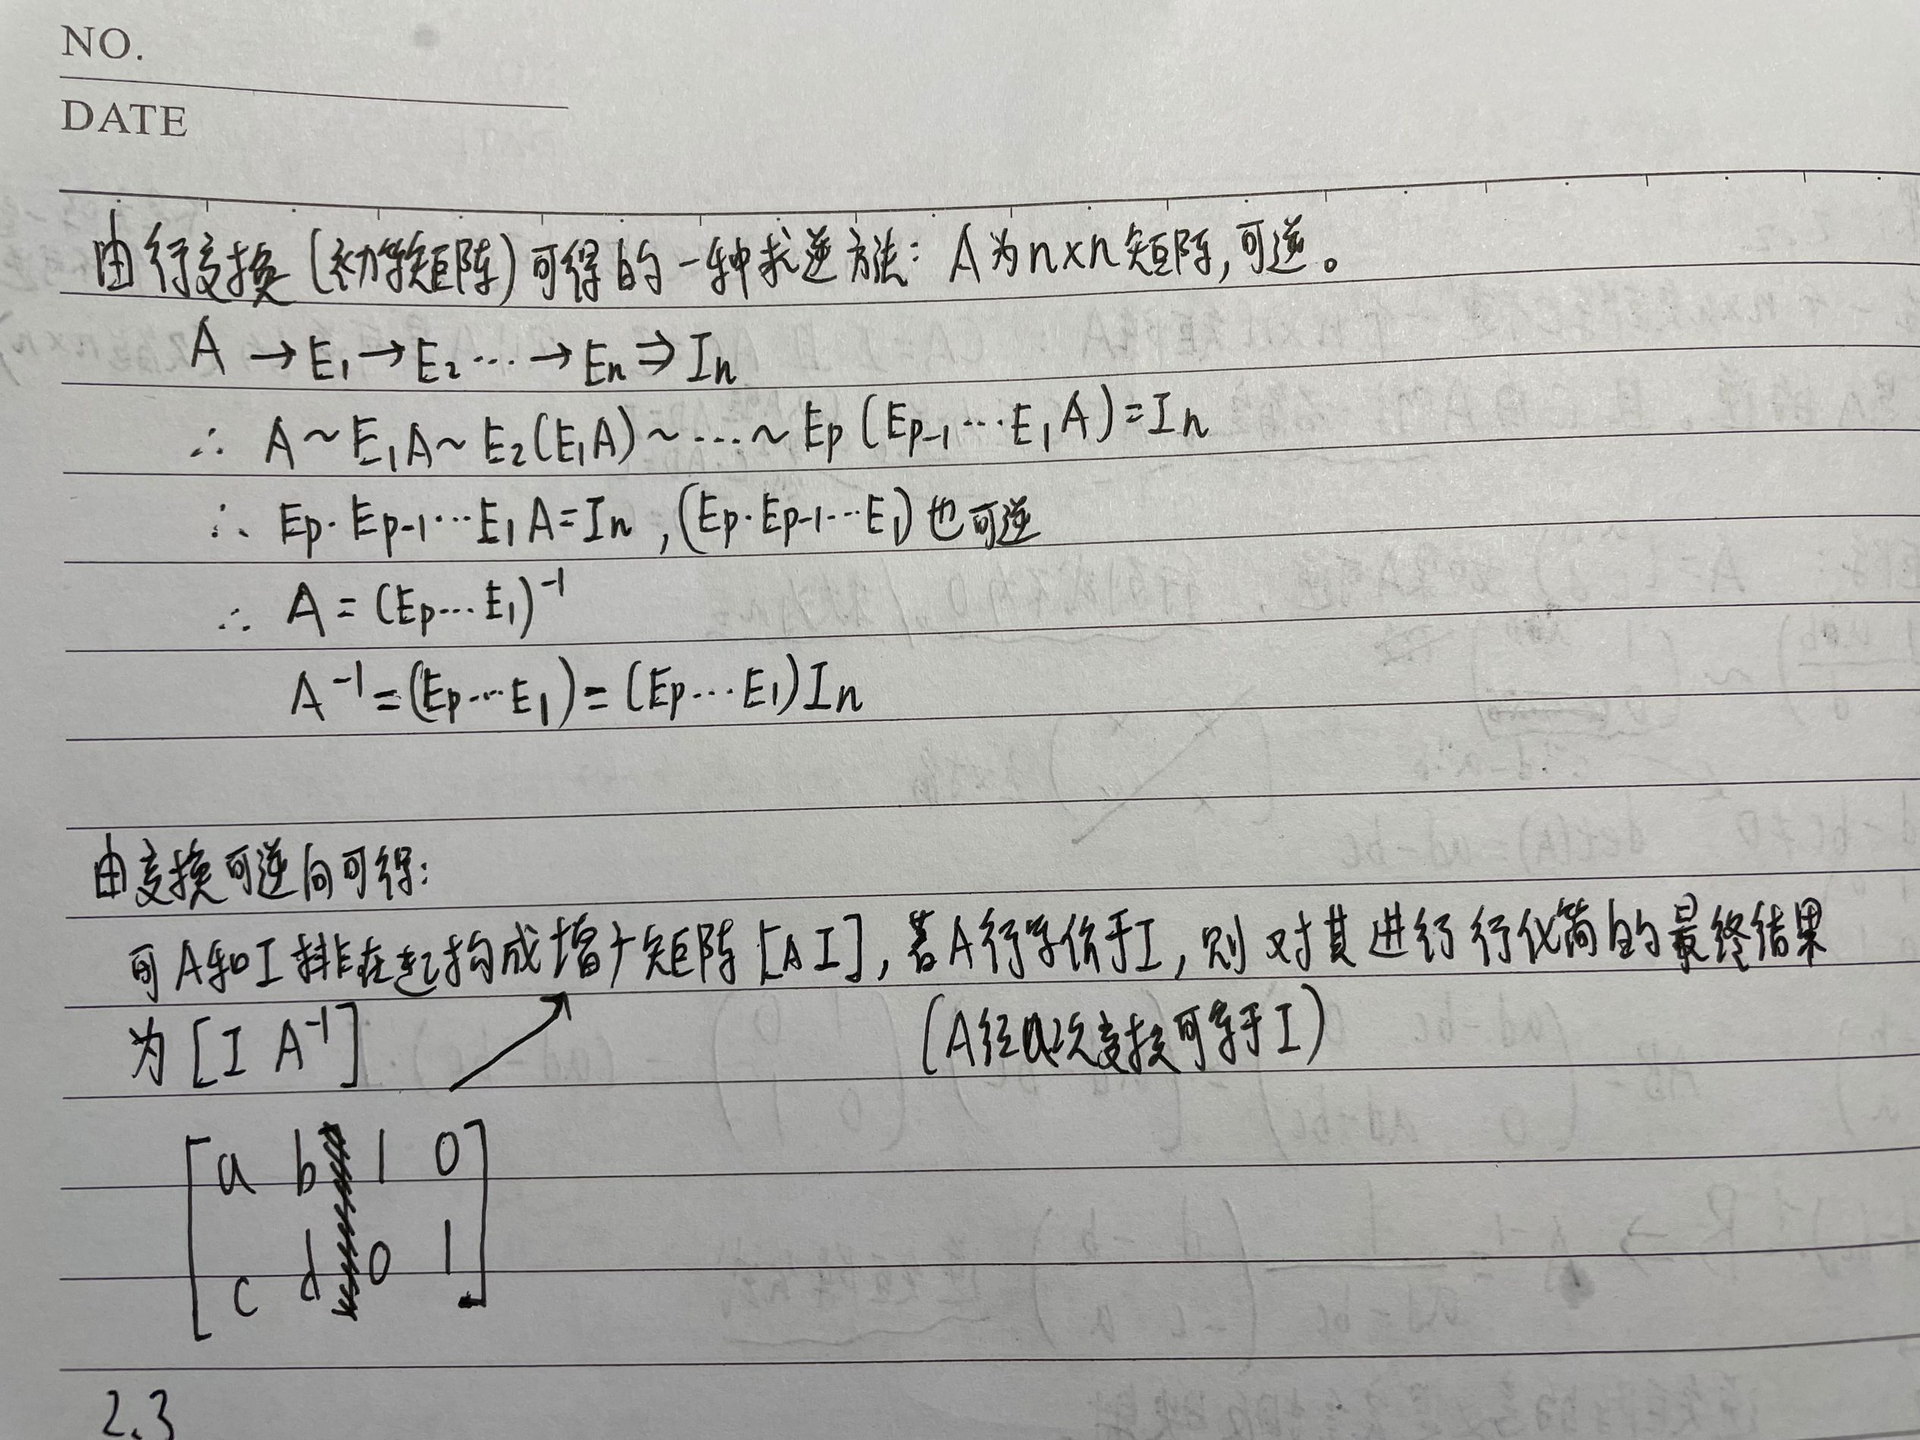 NO.
DATE
由行变换(初等矩阵)可得的一种求逆方法: A为n×n矩阵,可逆。
A → E₁ → E₂ ··· → En ⇒ In
∴ A ~ E₁A ~ E₂(E₁A) ~ ··· ~ Ep (Ep-1 ··· E₁A) = In
∴ Ep · Ep-1 ··· E₁ A = In , (Ep · Ep-1 ··· E₁) 也可逆
∴ A = (Ep ··· E₁)⁻¹
A⁻¹ = (Ep ··· E₁) = (Ep ··· E₁) In
由变换可逆向可得:
可A和I排在一起构成增广矩阵 [A I], 若A行等价于I, 则对其进行行化简的最终结果
为 [I A⁻¹]
(A经次变换可等于I)
[a b 1 0
c d 0 1]
2.3